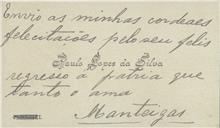 Envio as minhas cordeaes
felecitações pelo seu felis
Paulo Lopes da Silva
regresso á patria que
tanto o ama
Manteigas